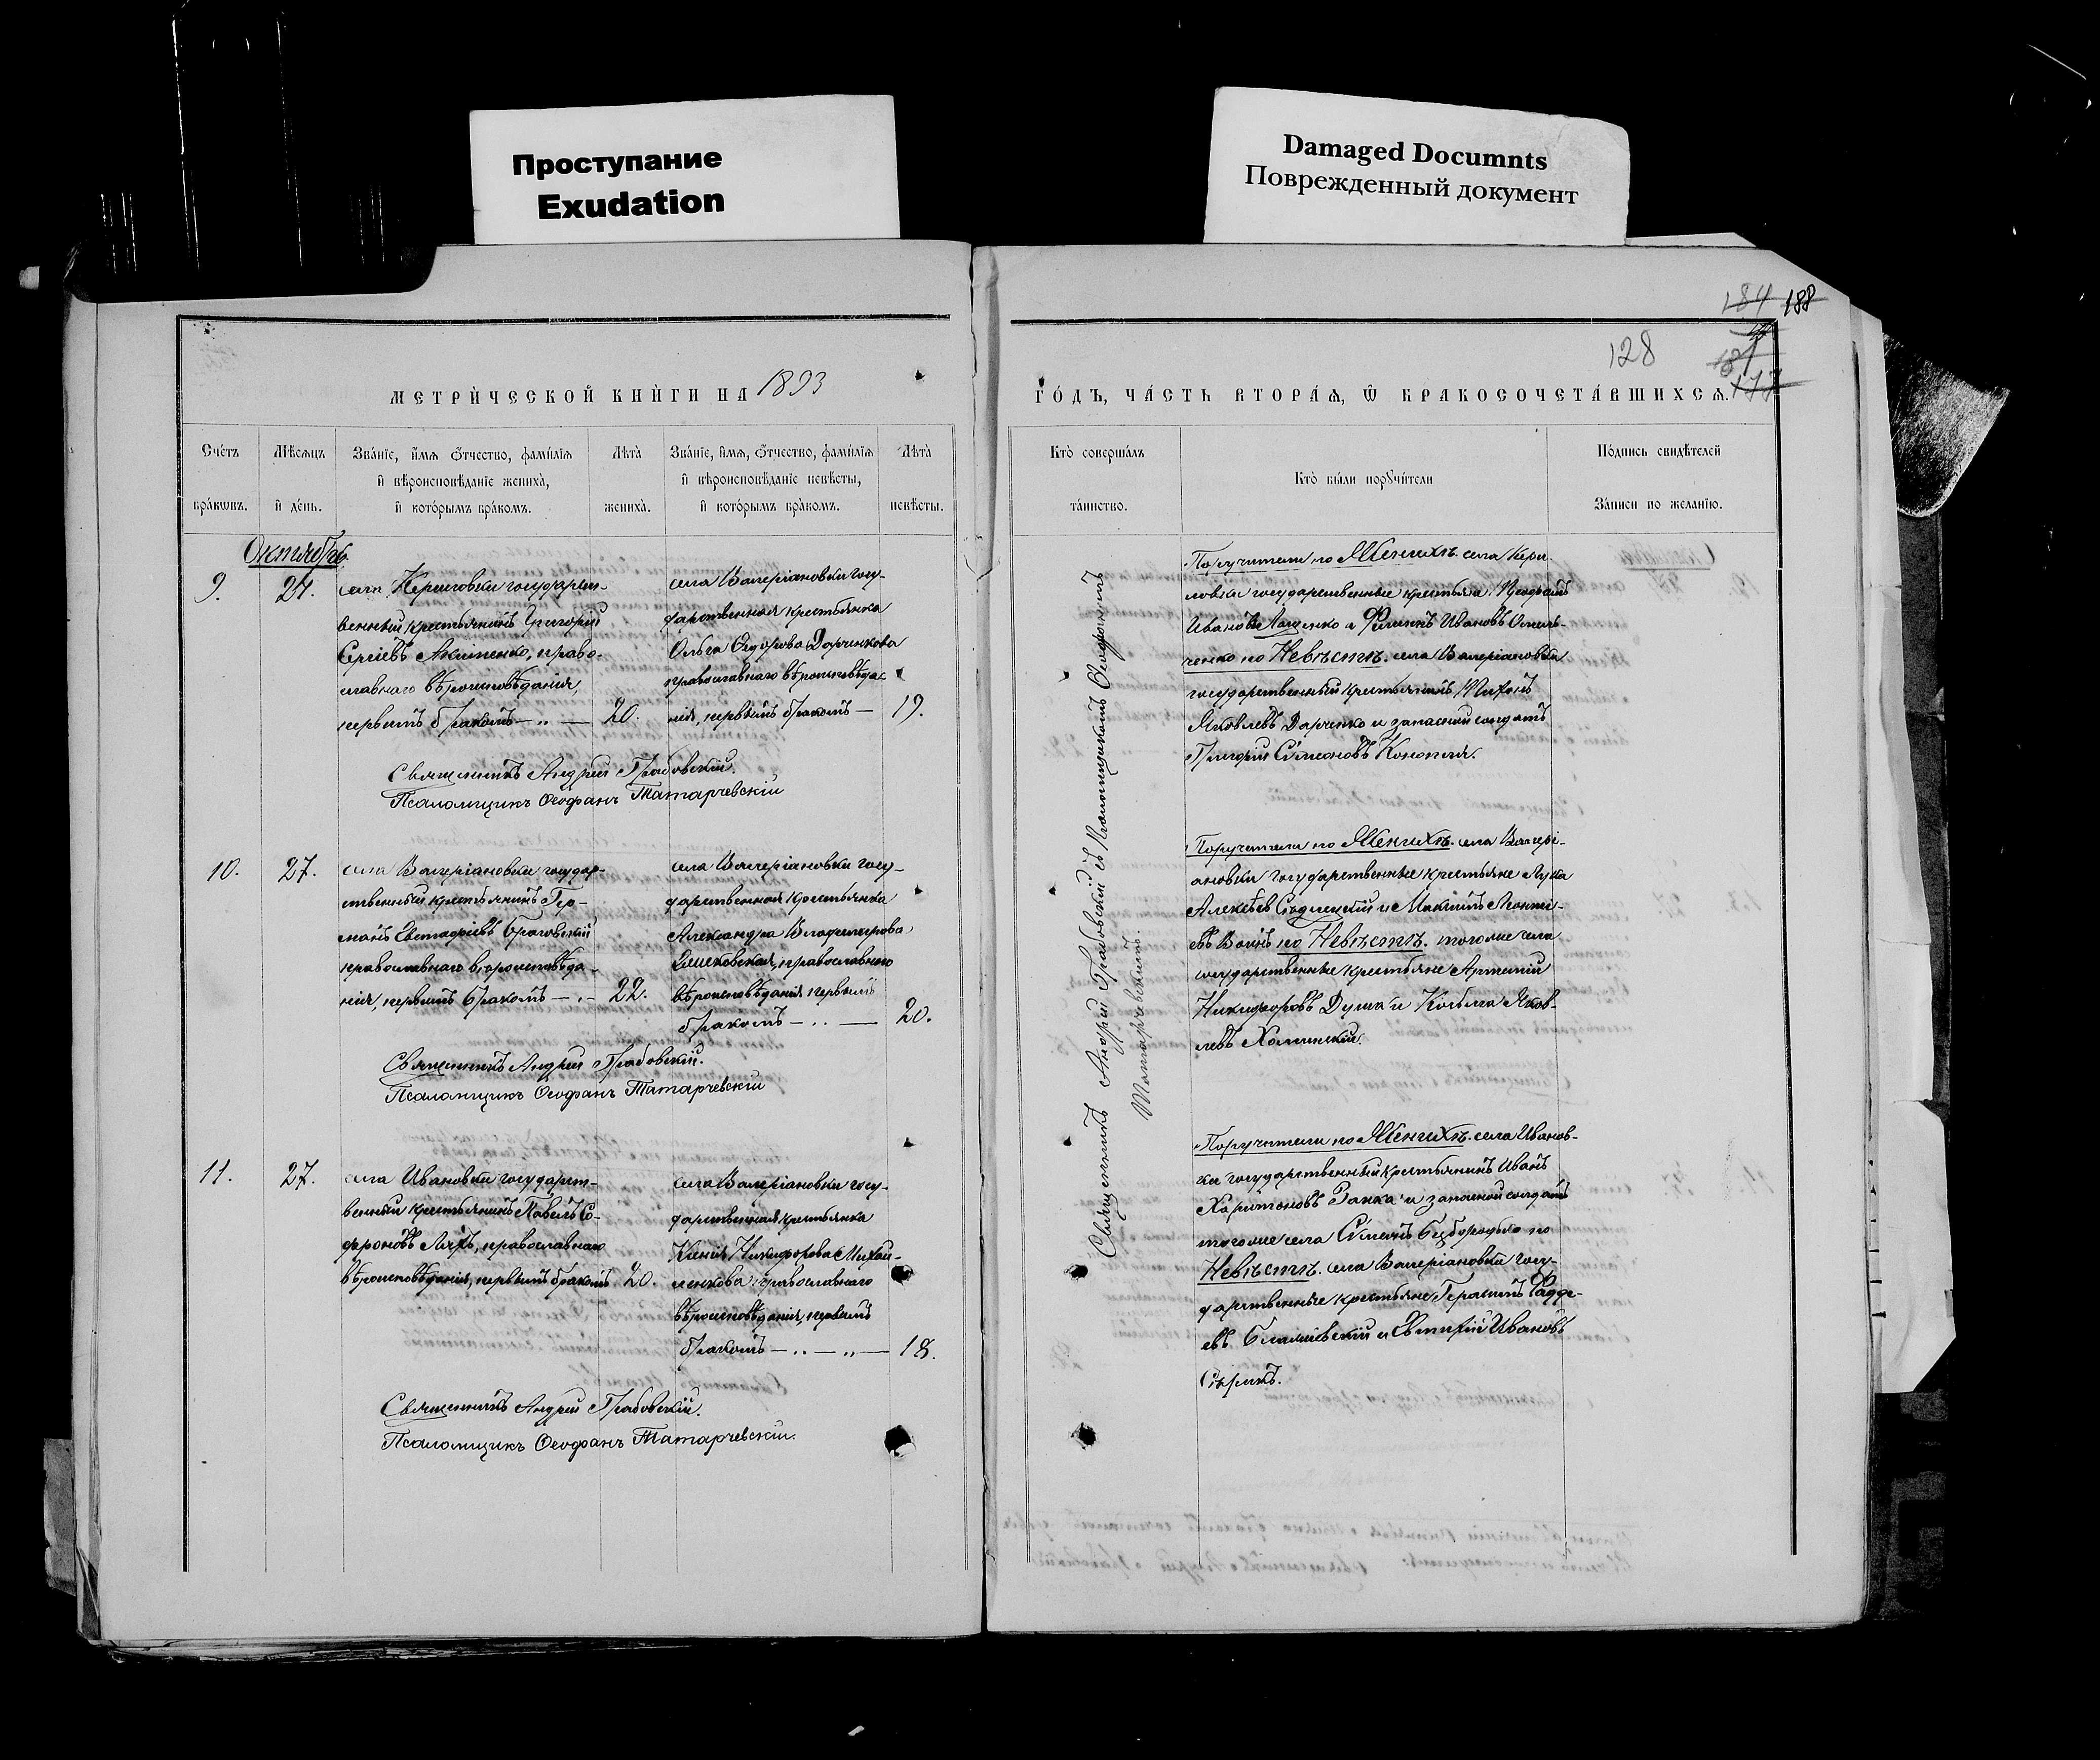 Проступание
Exudation
Damaged Documnts
Поврежденный документ
184 188
128
181
177
МЕТРИ́ЧЕСКОЙ КНИ́ГИ НА 1893
ГО́ДЪ, ЧА́СТЬ ВТОРА́Ѧ, Ѿ БРАКОСОЧЕТА́ВШИХСѦ.
Сче́тъ бра́кѡвъ.
Мѣ́сѧцъ и҆ де́нь.
Зва́нїе, и҆́мѧ ѻ҆́тчество, фами́лїѧ
и҆ вѣроисповѣ́данїе жениха̀,
и҆ кото́рымъ бра́комъ.
Лѣта̀ жениха̀.
Зва́нїе, и҆́мѧ, ѻ҆́тчество, фами́лїѧ
и҆ вѣроисповѣ́данїе невѣ́сты,
и҆ кото́рымъ бра́комъ.
Лѣта̀ невѣ́сты.
Кто̀ соверша́лъ
та́инство.
Кто̀ бы́ли порꙋчи́тели
По́дпись свидѣ́телей
За́писи по жела́нїю.
Октябрь
9.
24.
села Кериловки государст-
венный крестьянинъ Григорій
Сергіевъ Акименко, право-
славнаго вѣроисповѣданія,
первымъ бракомъ — „ —
20.
села Валеріановки госу-
дарственная крестьянка
Ольга Ѳедорова Дарченкова
православнаго вѣроисповѣда-
нія, первымъ бракомъ —
19.
Священникъ Андрей Грабовскій.
Псаломщикъ Ѳеофанъ Татарчевскій
10.
27.
села Валеріановки государ-
ственный крестьянинъ Гер-
манъ Евстафіевъ Браговскій
православнаго вѣроисповѣда-
нія, первымъ бракомъ — „ —
22.
села Валеріановки госу-
дарственная крестьянка
Александра Владимирова
православнаго
вѣроисповѣданія первымъ
бракомъ — „ —
20.
Священникъ Андрей Грабовскій.
Псаломщикъ Ѳеофанъ Татарчевскій
11.
27.
села Ивановки государст-
венный крестьянинъ Павелъ Со-
фроновъ Ляхъ, православнаго
вѣроисповѣданія, первымъ бракомъ
20.
села Валеріановки госу-
дарственная крестьянка
Ксенія Никифорова Михай-
ленкова православнаго
вѣроисповѣданія, первымъ
бракомъ — „ — „ —
18.
Священникъ Андрей Грабовскій.
Псаломщикъ Ѳеофанъ Татарчевскій.
Священникъ Андрей Грабовскій съ Псаломщикомъ Ѳеофаномъ
Татарчевскимъ.
Поручители по Женихѣ: села Кери-
ловки государственные крестьяне: Ѳеодосій
Ивановъ Лащенко и Филиппъ Ивановъ Омель-
ченко по Невѣстѣ: села Валеріановки
государственный крестьянинъ Тихонъ
Яковлевъ Дарченко и запасный солдатъ
Григорій Сѵмеоновъ Конопля.
Поручители по Женихѣ: села Валері-
ановки государственные крестьяне Лука
Алексѣевъ Сѣдлецкій и Максимъ Леонті-
евъ Воинъ по Невѣстѣ: тогоже села
государственные крестьяне Артемій
Никифоровъ Душа и Яков-
левъ Хоминскій.
Поручители по Женихѣ: села Иванов-
ки государственный крестьянинъ Иванъ
Харитоновъ Ганжа и запасной солдатъ
тогоже села Сѵмеонъ Безбородько по
Невѣстѣ: села Валеріановки госу-
дарственные крестьяне Герасимъ Фадде-
евъ и Евтихій Ивановъ
Сѣрикъ.